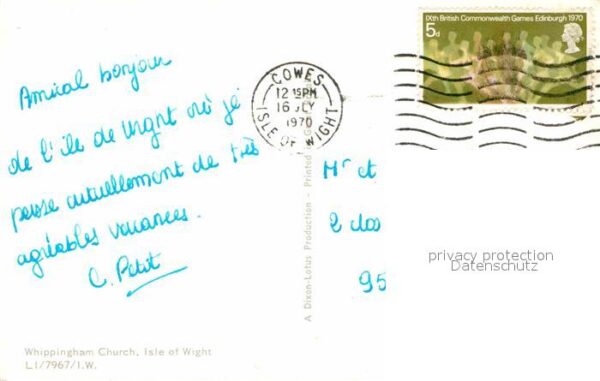 IXth British Commonwealth Games Edinburgh 1970
5d
COWES
12 15PM
16 JLY
1970
ISLE OF WIGHT
Amical bonjour
de l'île de Wight où je
passe actuellement de très
agréables vacances.
C. Petit
A Dixon-Lotus Production - Printed
Mr et
2 clos
95
privacy protection
Datenschutz
Whippingham Church, Isle of Wight
L1/7967/I.W.